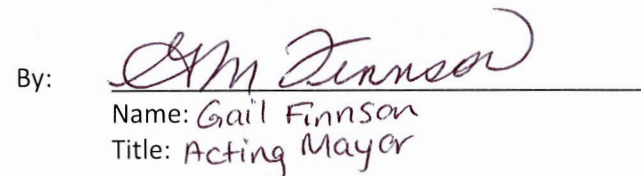 By: GM Finnson
Name: Gail Finnson
Title: Acting Mayor